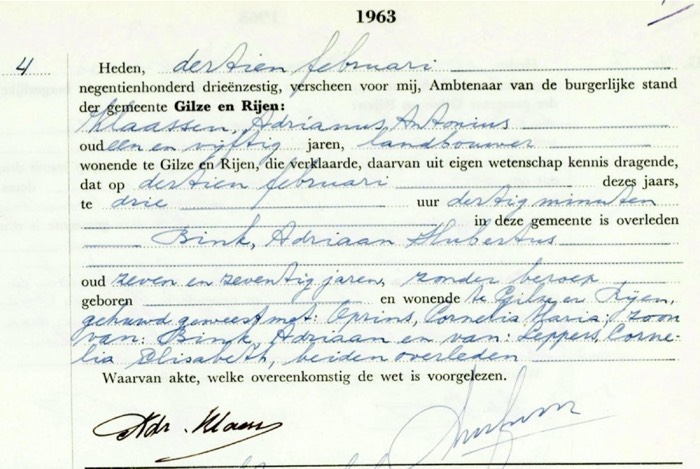 1963
4 Heden, dertien februari
negentienhonderd drieënzestig, verscheen voor mij, Ambtenaar van de burgerlijke stand
der gemeente Gilze en Rijen:
Klaassen, Adrianus Antonius
oud een en vijftig jaren, landbouwer
wonende te Gilze en Rijen, die verklaarde, daarvan uit eigen wetenschap kennis dragende,
dat op dertien februari dezes jaars,
te drie uur dertig minuten
in deze gemeente is overleden
Bink, Adriaan Hubertus
oud zeven en zeventig jaren, zonder beroep
geboren en wonende te Gilze en Rijen,
gehuwd geweest met: Oprins, Cornelia Maria, zoon
van: Bink, Adriaan en van: Leppers, Corne-
lia Elisabeth, beiden overleden
Waarvan akte, welke overeenkomstig de wet is voorgelezen.
Adr. Klaassen